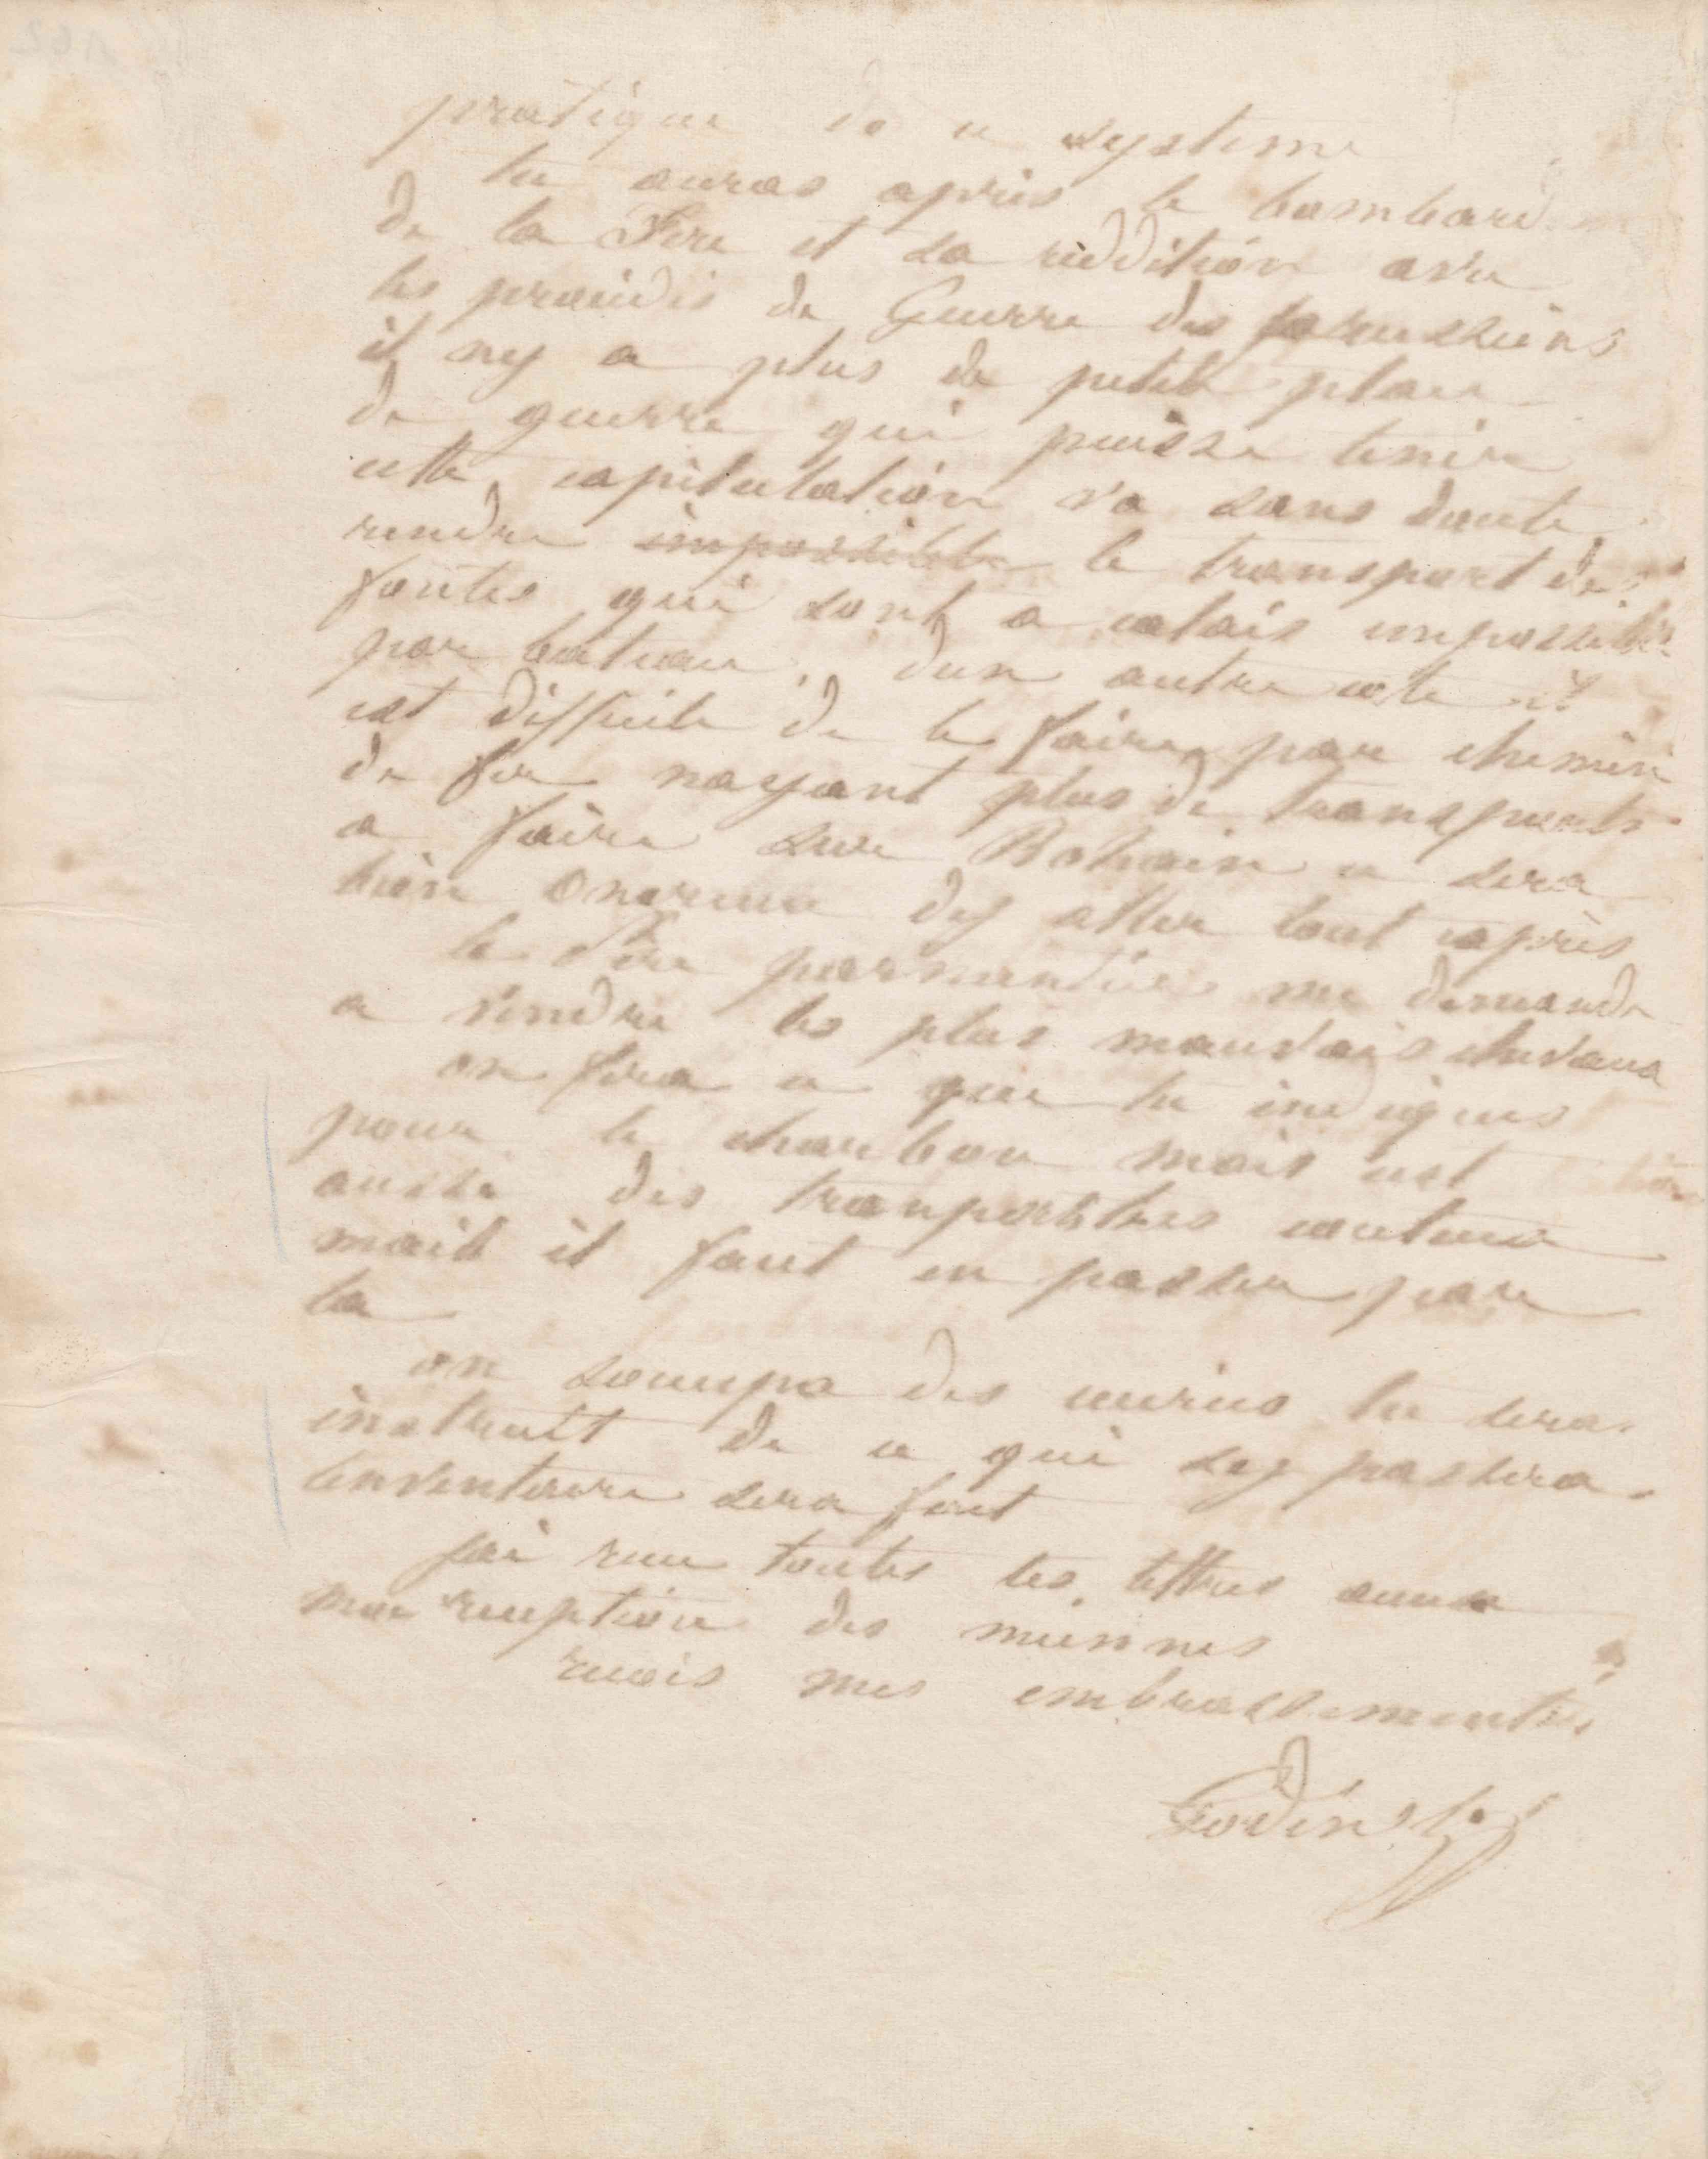 pratique de ce systeme
tu auras apris le bombard
de la Fere et sa réddition avec
les procédés de Guerre des prussiens
il ny a plus de petite place
de guerre qui puisse tenir
cette capitulation va sans doute
rendre impossible le transport des
fontes qui sont a calais impossible
par bateau, dun autre coté il
est difficile de le faire par chemin
de fer nayant plus de transports
a faire sur Bohain ce sera
bien onereux dy aller tout exprès
le Père parmentier me demande
a vendre les plus mauvais chevaux
on fera ce que tu indiques
pour le charbon mais cest
aussi des transports tres couteux
mais il faut en passer par
la
on soccupa des ecuries tu seras
instruit de ce qui sey passera.
linventaire sera fait
jai recu toutes les lettres accuse
moi reception des miennes
recois mes embrassements
Godin